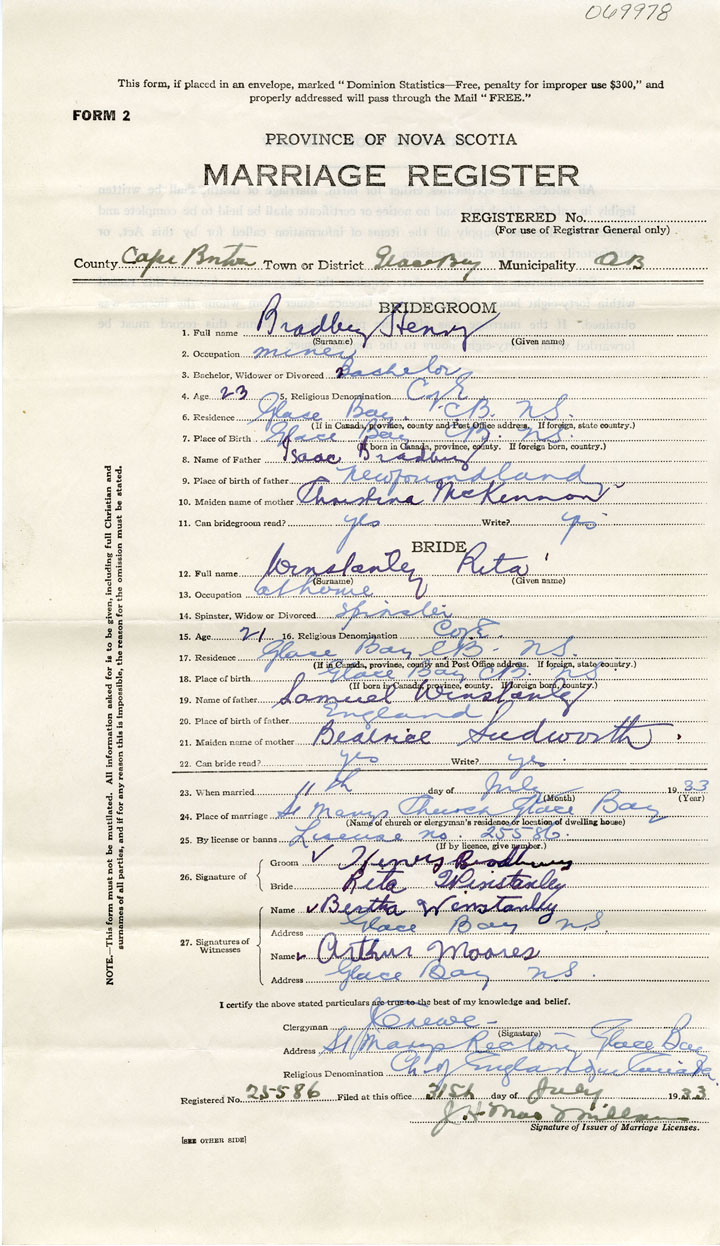 069978
This form, if placed in an envelope, marked "Dominion Statistics—Free, penalty for improper use $300," and
properly addressed will pass through the Mail "FREE."
FORM 2
PROVINCE OF NOVA SCOTIA
MARRIAGE REGISTER
REGISTERED No.
(For use of Registrar General only)
County Cape Breton Town or District Glace Bay Municipality CB
BRIDEGROOM
1. Full name Bradbury Henry
(Surname) (Given name)
2. Occupation miner
3. Bachelor, Widower or Divorced Bachelor
4. Age 23 5. Religious Denomination C of E
6. Residence Glace Bay C.B. N.S.
(If in Canada, province, county and Post Office address. If foreign, state country.)
7. Place of Birth Glace Bay C.B. N.S.
(If born in Canada, province, county. If foreign born, country.)
8. Name of Father Isaac Bradbury
9. Place of birth of father Newfoundland
10. Maiden name of mother Christina McKennon
11. Can bridegroom read? yes Write? yes
BRIDE
12. Full name Winstanly Rita
(Surname) (Given name)
13. Occupation at home
14. Spinster, Widow or Divorced Spinster
15. Age 21 16. Religious Denomination C of E.
17. Residence Glace Bay C.B. N.S.
(If in Canada, province, county and Post Office address. If foreign, state country.)
18. Place of birth Glace Bay C.B. N.S.
(If born in Canada, province, county. If foreign born, country.)
19. Name of father Samuel Winstanly
20. Place of birth of father England
21. Maiden name of mother Beatrice Sudworth
22. Can bride read? yes Write? yes
23. When married 11th day of July 1933
(Month) (Year)
24. Place of marriage St Marys Church Glace Bay
(Name of church or clergyman's residence or location of dwelling house)
25. By license or banns License no. 25586.
(If by licence, give number.)
26. Signature of Groom Henry Bradbury
Bride Rita Winstanly
27. Signatures of Witnesses
Name Bertha Winstanly
Address Glace Bay N.S.
Name Arthur Moores
Address Glace Bay N.S.
I certify the above stated particulars are true to the best of my knowledge and belief.
Clergyman
(Signature)
Address St Marys Rectory Glace Bay
Religious Denomination Ch of England in Canada
Registered No. 25586 Filed at this office 31st day of July 1933
J. H. MacMillan
Signature of Issuer of Marriage Licenses.
[SEE OTHER SIDE]
NOTE.—This form must not be mutilated. All information asked for is to be given, including full Christian and
surnames of all parties, and if for any reason this is impossible, the reason for the omission must be stated.